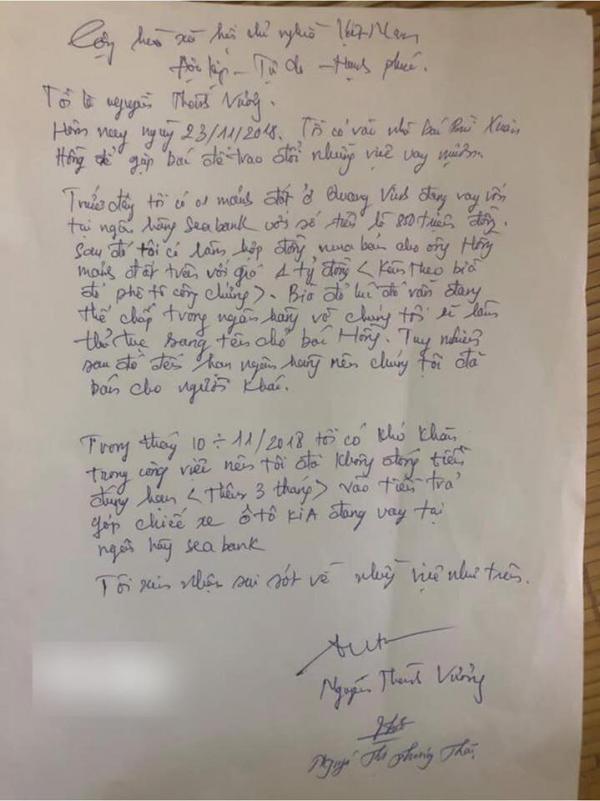 Cộng hoà xã hội chủ nghĩa Việt Nam
Độc lập - Tự do - Hạnh phúc.
Tôi là Nguyễn Thành Vương.
Hôm nay ngày 23/11/2018. Tôi có vào nhà bác Xuân
Hồng để gặp bác để trao đổi những việc vay mượn.
Trước đây tôi có 01 mảnh đất ở Quang Vinh đang vay vốn
tại ngân hàng Sea bank với số tiền là 850 triệu đồng.
Sau đó tôi có làm hợp đồng mua bán cho ông Hồng
mảnh đất trên với giá 1 tỷ đồng <Kèm theo bìa
đỏ phô tô công chứng>. Bìa đỏ lúc đó vẫn đang
thế chấp trong ngân hàng và chúng tôi sẽ làm
thủ tục sang tên cho bác Hồng. Tuy nhiên
sau đó đến hạn ngân hàng nên chúng tôi đã
bán cho người khác.
Trong tháng 10 ÷ 11/2018 tôi có khó khăn
trong công việc nên tôi đã không đóng tiền
đúng hạn <Thêm 3 tháng> vào tiền trả
góp chiếc xe ô tô KIA đang vay tại
ngân hàng sea bank
Tôi xin nhận sai sót về những việc như trên.
Nguyễn Thành Vương
Nguyễn Thị Phương Thảo